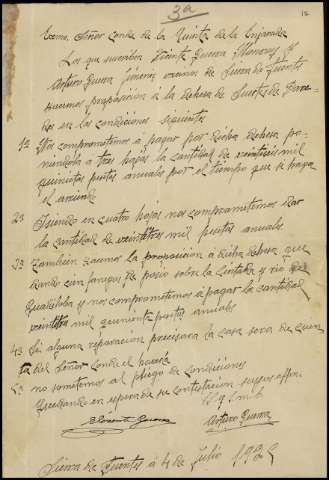 3a
Excmo. Señor Conde de la Quinta de la Enjarada
Los que suscriben Vicente Guerra Manozas y
Arturo Guerra Jiménez vecinos de Sierra de Fuentes
hacemos proposición a la dehesa de Suerte de
dos en las condiciones siguientes
1a Nos comprometemos a pagar por dicha dehesa po-
niendola a tres hojas la cantidad de veintiseis mil
quinientas pesetas anuales por el tiempo que se haga
el arriendo
2a Siendo en cuatro hojas nos comprometemos dar
la cantidad de veintitres mil pesetas anuales
3a Tambien hacemos la proposición a dicha dehesa que
dando cien fanegas de posio sobre la y rio
Guadiloba y nos comprometemos a pagar la cantidad
veintitres mil quinientas pesetas anuales
4a Si alguna reparación precisara la casa sera de cuen
ta del Señor Conde el hacerla
5a nos sometemos al pliego de condiciones
Quedando en espera de su contestación suyos affmos.
q e s m b
Vicente Guerra Arturo Guerra
Sierra de Fuentes a 4 de Julio 1925